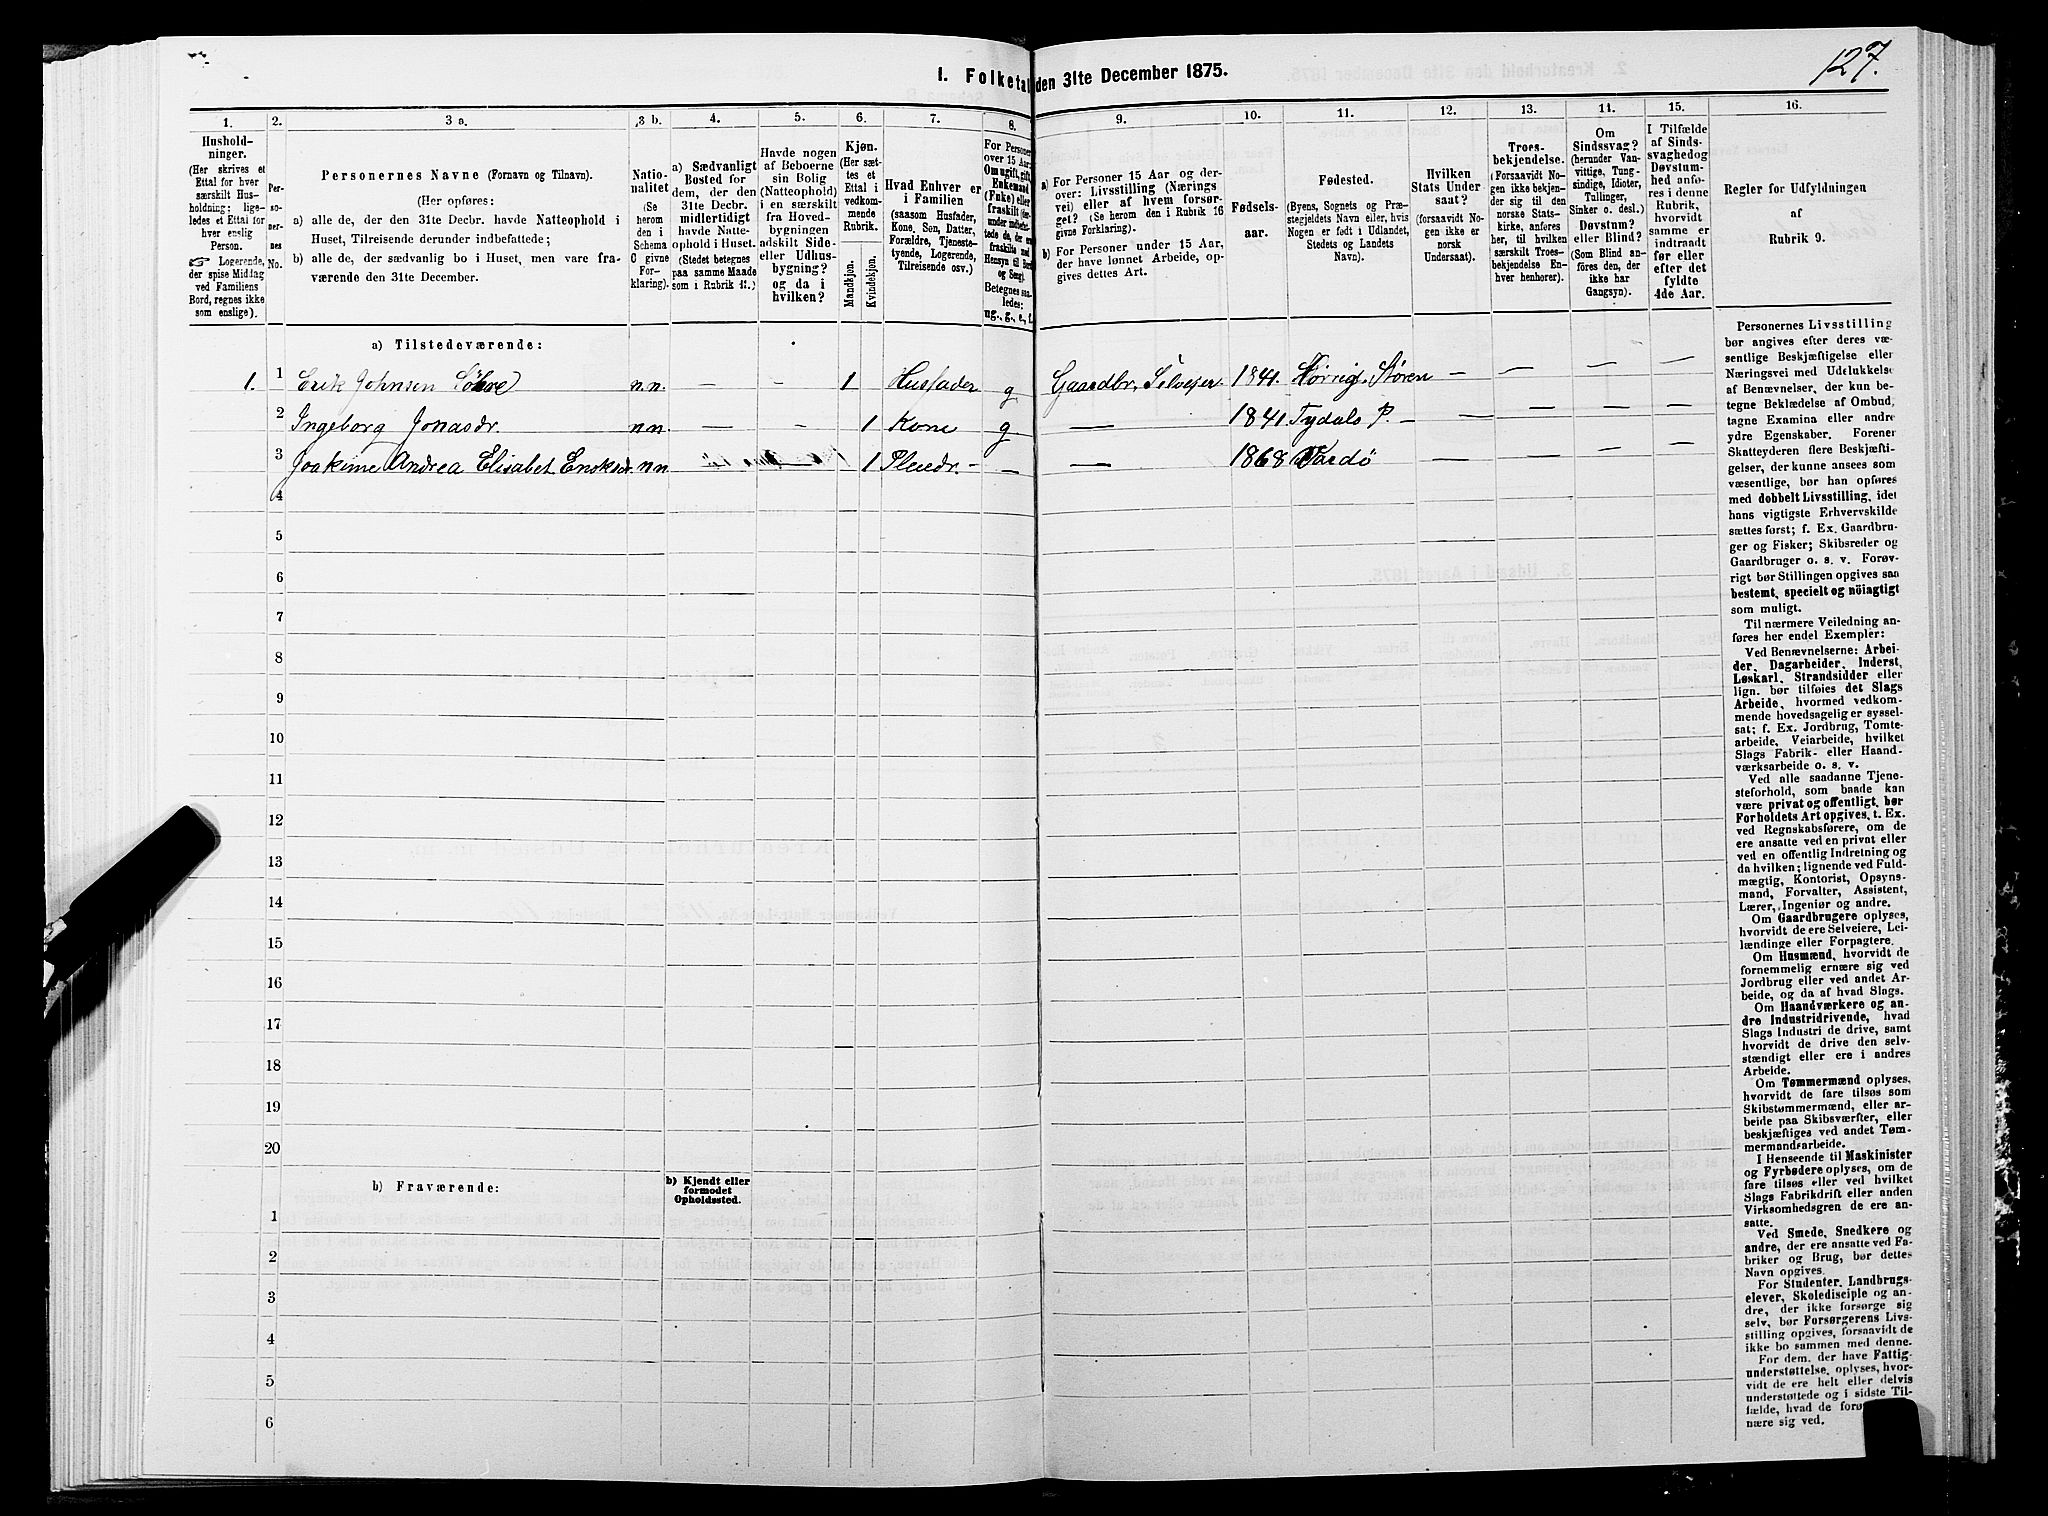 127.
1. Folketal den 31te December 1875.
1.
2.
3 a.
3 b.
4.
5.
6.
7.
8.
9.
10.
11.
12.
13.
14.
15.
16.
Hushold-
ninger.
(Her skrives et
Ettal for hver
særskilt Hus-
holdning; lige-
ledes et Ettal for
hver enslig
Person.
☞ Logerende,
der spise Middag
ved Familiens
Bord, regnes ikke
som enslige).
Per-
so-
ner-
nes
No.
Personernes Navne (Fornavn og Tilnavn).
(Her opføres:
a) alle de, der den 31te Decbr. havde Natteophold i
Huset, Tilreisende derunder indbefattede;
b) alle de, der sædvanlig bo i Huset, men vare fra-
værende den 31te December.
Natio-
nalitet
(Se
herom
den i
Schema
C givne
For-
klaring).
a) Sædvanligt
Bosted for
dem, der den
31te Decbr.
midlertidigt
havde Natte-
ophold i Huset.
(Stedet betegnes
paa samme Maade
som i Rubrik 11.)
Havde nogen
af Beboerne
sin Bolig
(Natteophold)
i en særskilt
fra Hoved-
bygningen
adskilt Side-
eller Udhus-
bygning?
og da i
hvilken?
Kjøn.
(Her sæt-
tes et
Ettal i
vedkom-
mende
Rubrik.
Mandkjøn.
Kvindekjøn.
Hvad Enhver er
i Familien
(saasom Husfader,
Kone, Søn, Datter,
Forældre, Tjeneste-
tyende, Logerende,
Tilreisende osv.)
For Personer
over 15 Aar:
Om ugift, gift,
Enkemand
(Enke) eller
fraskilt
Betegnes saa-
ledes:
ug., g., e., f.
a) For Personer 15 Aar og der-
over: Livsstilling (Nærings
vei) eller af hvem forsør-
get? (Se herom de i Rubrik 16
givne Forklaring).
b) For Personer under 15 Aar,
der have lønnet Arbeide, op-
gives dettes Art.
Fødsels-
aar.
Fødested.
(Byens, Sognets og Præ-
stegjeldets Navn eller, hvis
Nogen er født i Udlandet,
Stedets og Landets
Navn).
Hvilken
Stats Under
saat?
(forsaavidt No-
gen ikke er
norsk
Undersaat).
Troes-
bekjendelse.
(Forsaavidt No-
gen ikke bekjen-
der sig til den
norske Stats-
kirke, anføres
her, til hvilken
særskilt Troes-
bekjendelse En-
hver henhorer).
Om
Sindssvag?
(herunder Van-
vittige, Tung-
sindige, Idioter,
Tullinger,
Sinker o. desl.)
Døvstum?
eller Blind?
(Som Blind an-
føres den, der
ikke har
Gangsyn).
I Tilfælde
af Sinds-
svaghed og
Døvstum-
hed anfø-
res i denne
Rubrik,
hvorvidt
samme er
indtraadt
før eller
efter det
fyldte
4de Aar.
Regler for Udfyldningen
af
Rubrik 9.
a) Tilstedeværende:
1. 1 Erik Johnsen n.n. — - 1 Husfader g Gaardbr. Selvejer. 1841. Størén — — —
2 Ingeborg Jonasdr. n.n. — - 1 Kone g — 1841 Tydals P. — — — —
3 Joakime Andrea Elisabet Eriksdr n.n — 1 Pleiedr. — — — 1868 Vardø — — — —
4
5
6
7
8
9
10
11
12
13
14
15
16
17
18
19
20
b) Fraværende:
b) Kjendt eller
formodet
Opholdssted.
1
2
3
4
5
6
Personernes Livsstilling
bør angives efter deres væ-
sentlige Beskjæftigelse eller
Næringsvei med Udelukkelse
af Benævnelser, der kun be-
tegne Beklædelse af Ombud,
tagne Examina eller andre
ydre Egenskaber. Forener
Skatteyderen flere Beskjæfti-
gelser, der kunne ansees som
væsentlige, bør han opføres
med dobbelt Livsstilling, idet
hans vigtigste Erhvervskilde
sættes først; f. Ex. Gaardbru-
ger og Fisker; Skibsreder og
Gaardbruger o. s. v. Forøv-
rigt bør Stillingen opgives saa
bestemt, specielt og nöiagtigt
som muligt.
Til nærmere Veiledning an-
føres her endel Exempler:
Ved Benævnelserne: Arbei-
der, Dagarbeider, Inderst,
Løskarl, Strandsidder eller
lign. bør tilføies det Slags
Arbeide, hvormed vedkom-
mende hovedsagelig er syssel-
sat; f. Ex. Jordbrug, Tomte-
arbeide, Veiarbeide, hvilket
Slags Fabrik- eller Haand-
værksarbeide o. s. v.
Ved alle saadanne Tjene-
steforhold, som baade kan
være privat og offentligt, bør
Forholdets Art opgives, t. Ex.
ved Regnskabsførere, om de
ere ansatte ved en privat eller
ved en offentlig Indretning og
da hvilken; lignende ved Fuld-
mægtig, Kontorist, Opsyns-
mand, Forvalter, Assistent,
Lærer, Ingeniør og andre.
Om Gaardbrugere oplyses,
hvorvidt de ere Selveiere, Lei-
lændinge eller Forpagtere.
Om Husmænd, hvorvidt de
fornemmelig ernære sig ved
Jordbrug eller ved andet Ar-
beide, og da af hvad Slags.
Om Haandværkere og an-
dre Industridrivende, hvad
Slags Industri de drive, samt
hvorvidt de drive den selv-
stændigt eller ere i andres
Arbeide.
Om Tømmermænd oplyses,
hvorvidt de fare tilsøs som
Skibstømmermænd, eller ar-
beide paa Skibsværfter, eller
beskjæftiges ved andet Tøm-
mermandsarbeide.
I Henseende til Maskinister
og Fyrbødere oplyses, om de
fare tilsøs eller ved hvilket
Slags Fabrikdrift eller anden
Virksomhedsgren de ere an-
satte.
Ved Smede, Snedkere og
andre, der ere ansatte ved Fa-
briker og Brug, bør dettes
Navn opgives.
For Studenter, Landbrugs-
elever, Skoledisciple og an-
dre, der ikke forsørge sig
selv, bør Forsørgerens Livs-
stilling opgives, forsaavidt de
ikke bo sammen med denne.
For dem, der have Fattig-
understøttelse, oplyses, hvor-
vidt de ere helt eller delvis
understøttede og i sidste Til-
fælde, hvad de
nære sig ved.